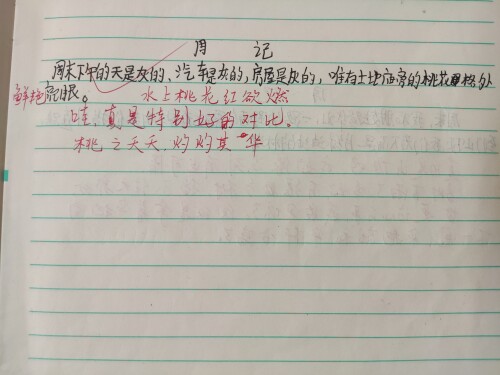 周记
周末下午的天是灰的、汽车是灰的，房屋是灰的，唯有土地庙旁的桃花
鲜艳亮眼。 水上桃花红欲燃
哇，真是特别好的对比。
桃之夭夭 灼灼其华